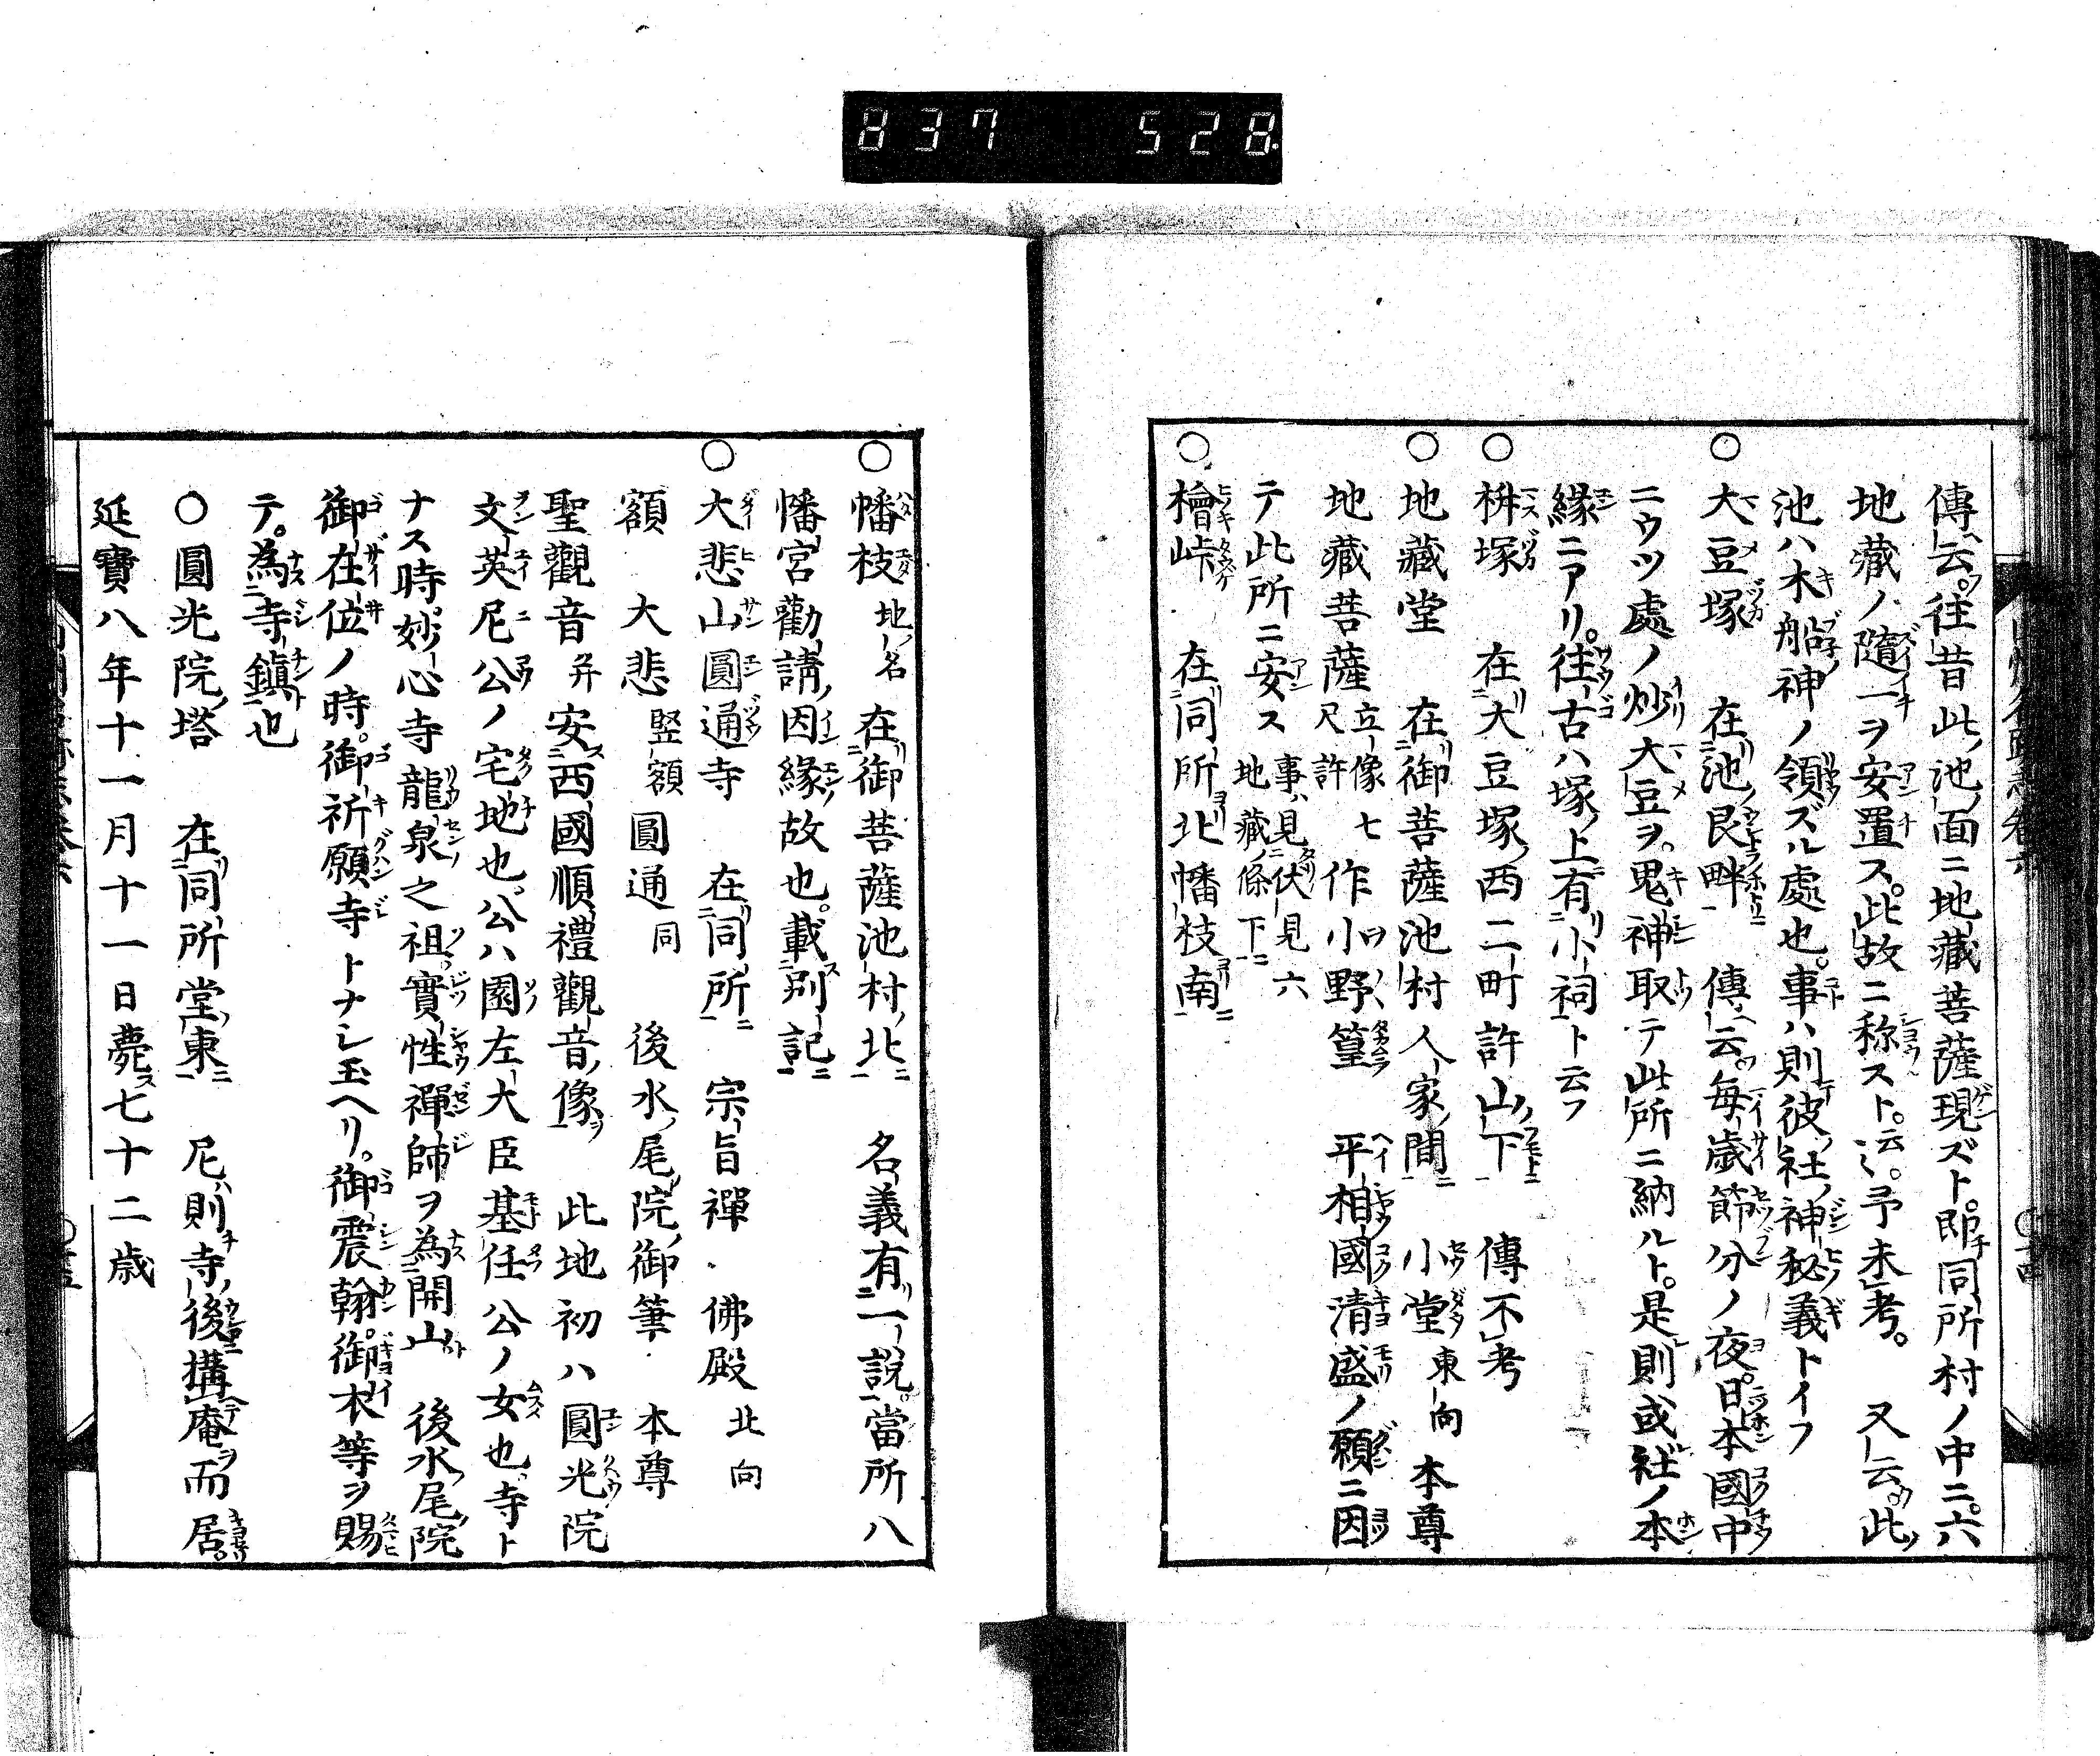 837 528.
傳云。往昔此池ノ面ニ地藏菩薩現ズト。即同所村ノ中ニ。六
地藏ノ隨一ヲ安置ス。此故ニ称スト。云〻。予未考。 又云此
池ハ木船神ノ領ズル處也。事ハ則彼社ノ神秘義トイフ
○大豆塚 在池ノ艮畔 傳云。毎歳節分ノ夜。日本國中
ニウツ處ノ炒大豆ヲ。鬼神取テ此所ニ納ルト。是則或社ノ本
緣ニアリ。往古ハ塚ノ上有小祠ト云フ
○枡塚 在大豆塚ノ西二町許山ノ下 傳不考
○地藏堂 在御菩薩池村人家ノ間 小堂 東向 本尊
地藏菩薩 立像七尺許 作小野篁 平相國清盛ノ願ニ因
テ此所ニ安ス 事ハ見伏見六地藏ノ條下
○檜峠 在同所北幡枝南
○幡枝 地ノ名 在御菩薩池村ノ北 名義有一說當所八
幡宮勸請ノ因緣ノ故也。載別記
○大悲山圓通寺 在同所 宗旨禪 佛殿 北向
額 大悲 竪額 圓通 同 後水ノ尾院ノ御筆 本尊
聖觀音 并安西國順禮觀音ノ像 此地初ハ圓光院
文英尼公ノ宅地也公ハ園左大臣基任公ノ女也寺ト
ナス時妙心寺龍泉之祖。實性禪師ヲ為開山 後水ノ尾院
御在位ノ時。御祈願寺トナシ玉ヘリ。御震翰。御衣等ヲ賜
テ。為寺鎮也
○圓光院ノ塔 在同所堂ノ東 尼則寺ノ後構庵而居。
延寶八年十一月十一日薨七十二歳